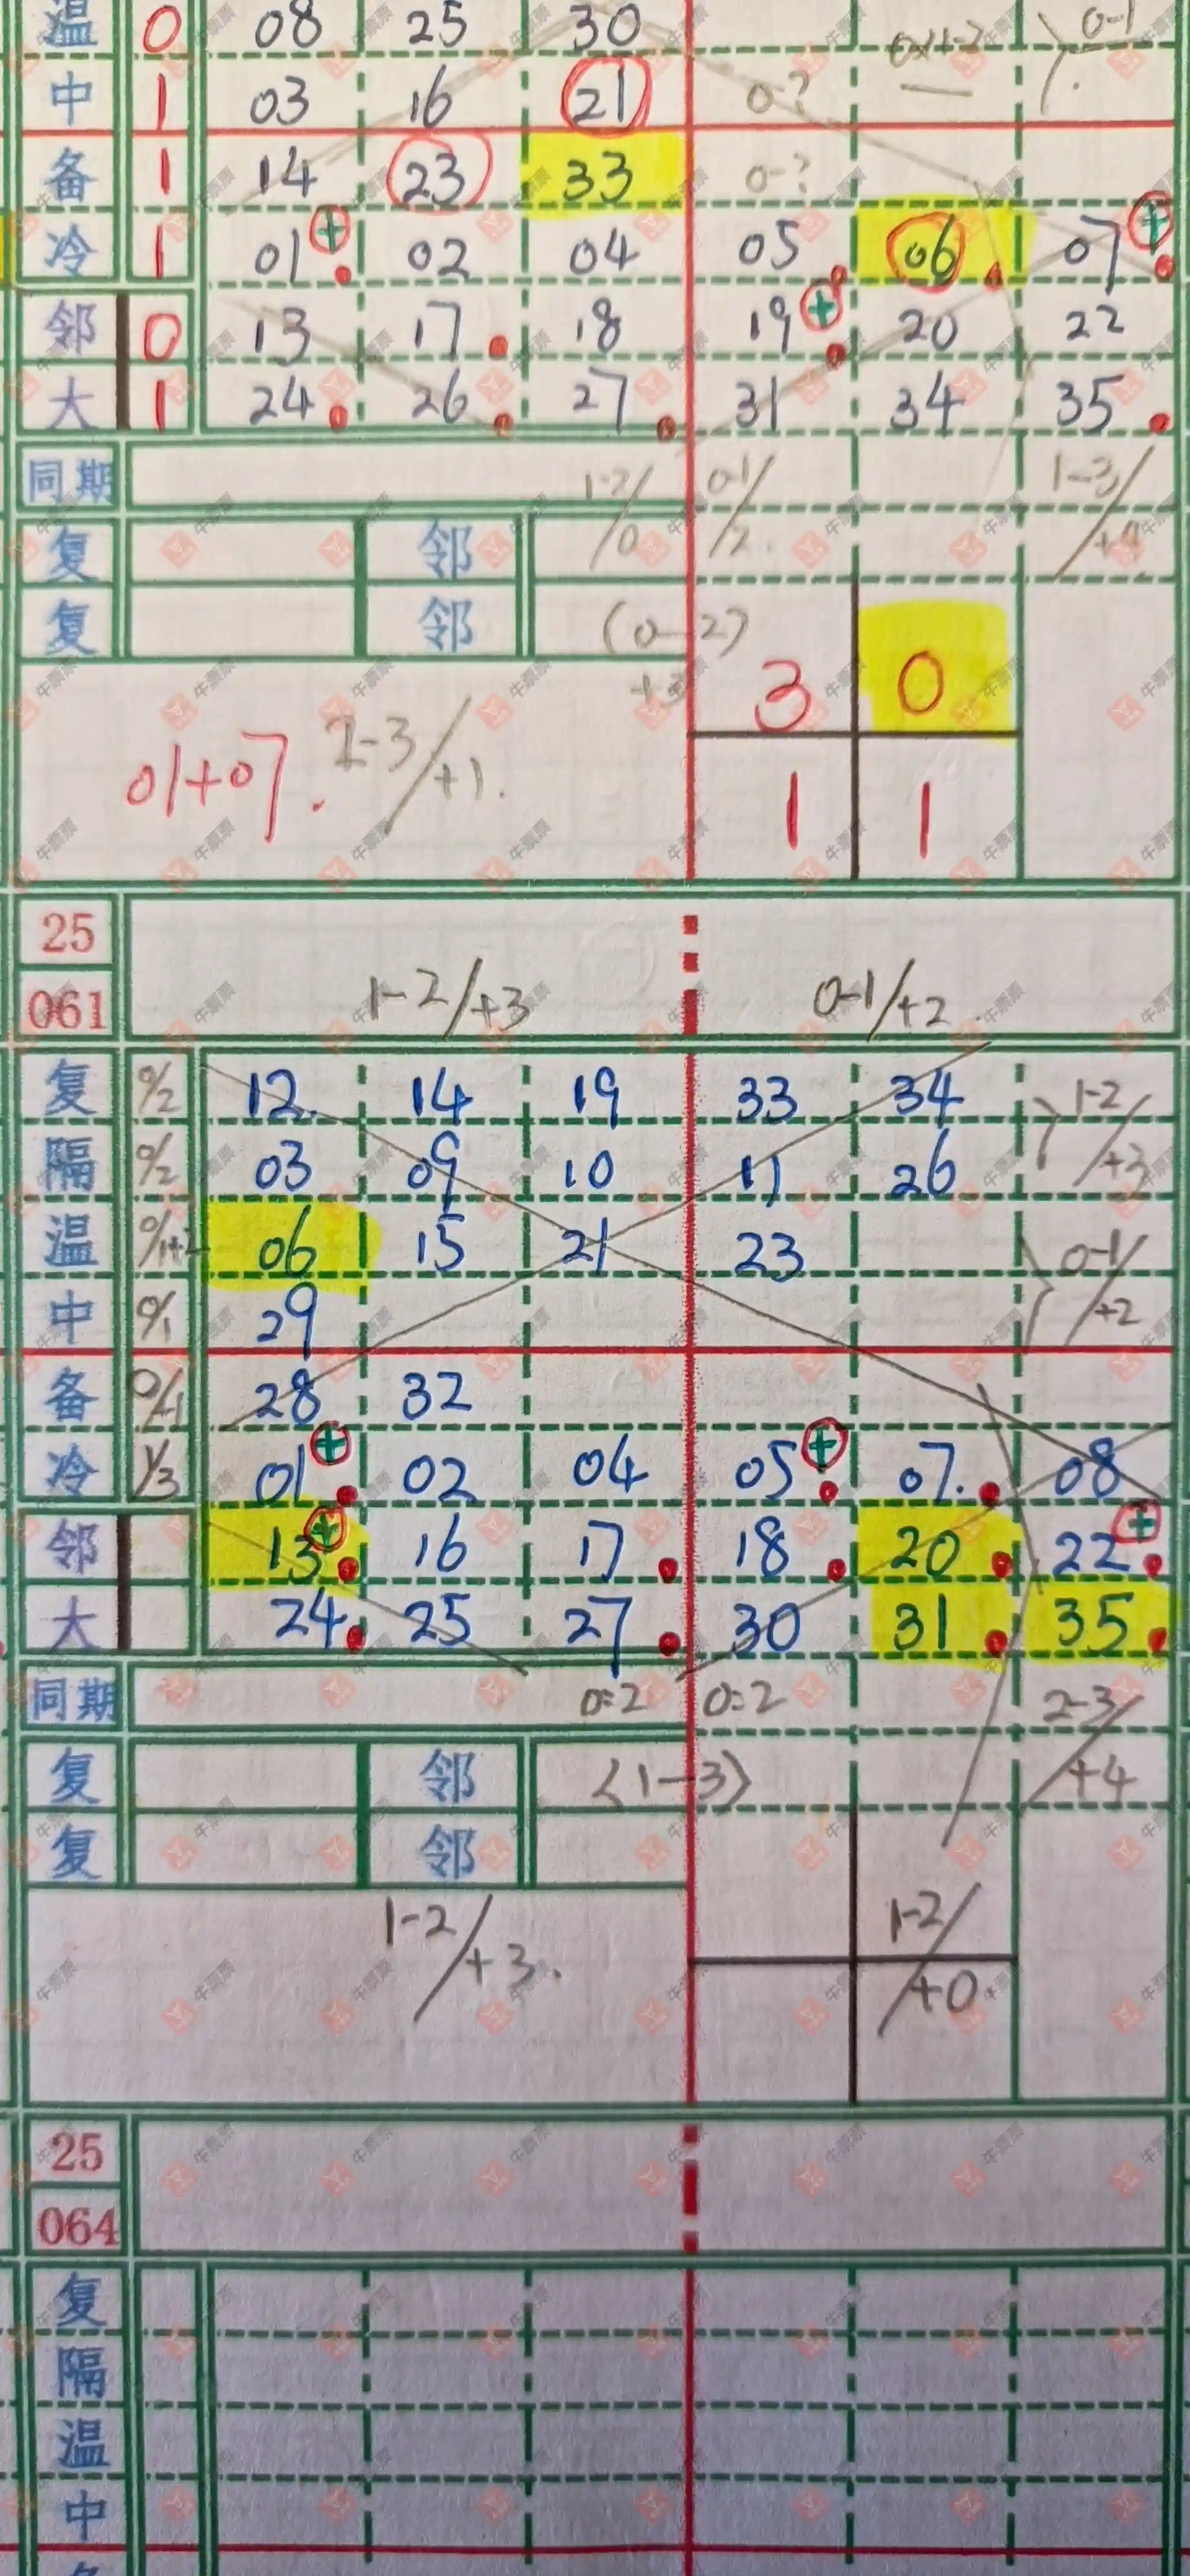 温 0 08 25 30 0-1
中 1 03 16 21 0-?
备 1 14 23 33 0-?
冷 1 01 + 02 04 05 06 07 +
邻 0 13 17 18 19 + 20 22
大 1 24 26 27 31 34 35
同期 1-2/0 0-1/2 1-3/+4
复 邻
复 邻 (0-2) +3
3 0
01+07. 2-3/+1.
1 1
25
061 1-2/+3 0-1/+2
复 0/2 12 14 19 33 34 1-2/+3
隔 0/2 03 09 10 11 26
温 0/1+2 06 15 21 23 0-1/+2
中 0/1 29
备 0/1 28 32
冷 1/3 01 + 02 04 05 + 07 08
邻 13 + 16 17 18 20 22 +
大 24 25 27 30 31 35
同期 0:2 0:2 2-3/+4
复 邻 <1-3>
复 邻
1-2/+3. 1-2/+0
25
064
复
隔
温
中
牛票票